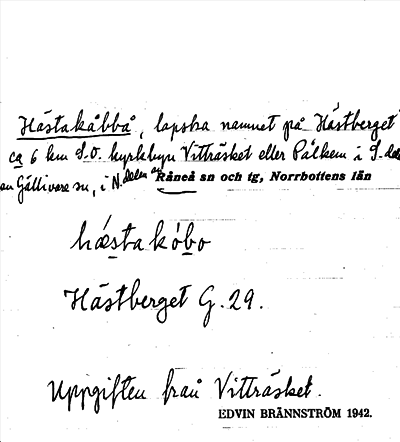 Hástakåbbå, lapska namnet på Hästberget
ca 6 km S.O. kyrkbyn Vitträsket eller Pålkem i S. del
en Gällivare sn, i N. delen av Råneå sn och tg, Norrbottens län
hǽsta kóbo
Hästberget G. 29.
Uppgiften från Vitträsket.
EDVIN BRÄNNSTRÖM 1942.